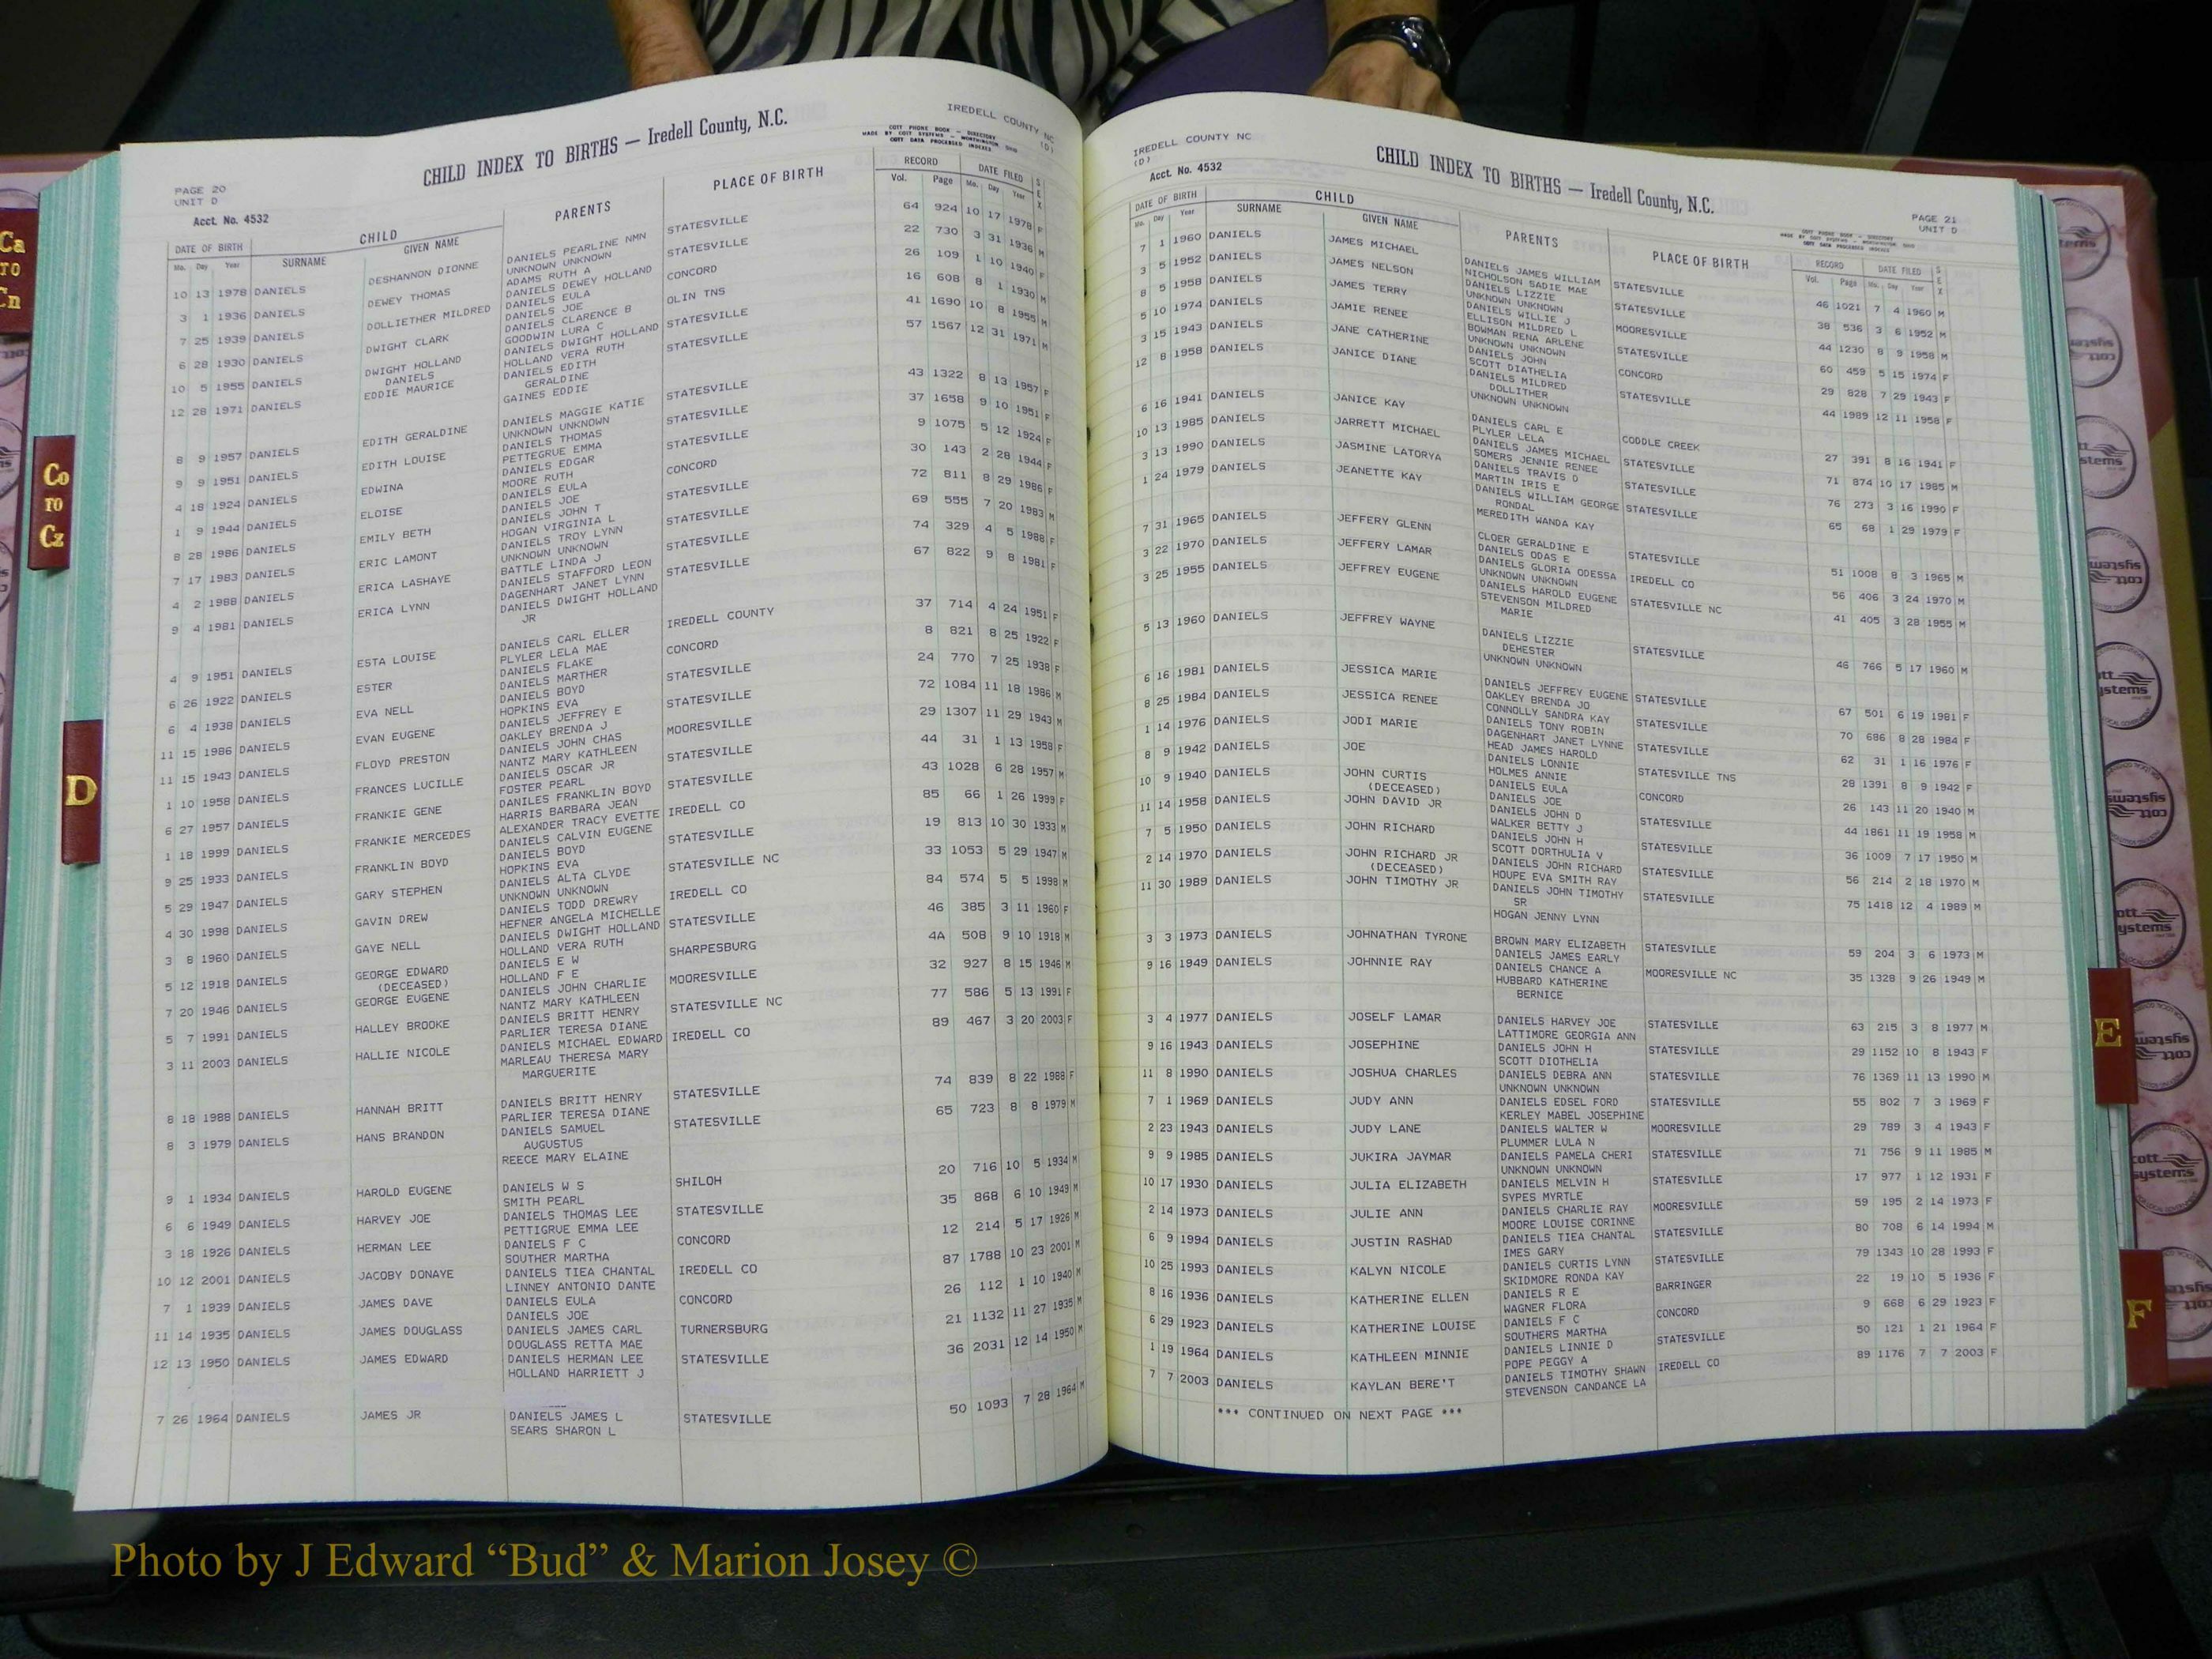 IREDELL COUNTY NC
(D)
CHILD INDEX TO BIRTHS — Iredell County, N.C.
COTT PHONE BOOK — DIRECTORY
MADE BY COTT SYSTEMS — WORTHINGTON, OHIO
COTT DATA PROCESSED INDEXES
PAGE 20
UNIT D
Acct. No. 4532
DATE OF BIRTH CHILD PARENTS PLACE OF BIRTH RECORD DATE FILED SEX
Mo. Day Year SURNAME GIVEN NAME Vol. Page Mo. Day Year
10 13 1978 DANIELS DESHANNON DIONNE DANIELS PEARLINE NMN STATESVILLE 64 924 10 17 1978 F
UNKNOWN UNKNOWN
3 1 1936 DANIELS DEWEY THOMAS ADAMS RUTH A STATESVILLE 22 730 3 31 1936 M
DANIELS DEWEY HOLLAND
7 25 1939 DANIELS DOLLIETHER MILDRED DANIELS EULA CONCORD 26 109 1 10 1940 F
DANIELS JOE
6 28 1930 DANIELS DWIGHT CLARK DANIELS CLARENCE B OLIN TNS 16 608 8 1 1930 M
GOODWIN LURA C
10 5 1955 DANIELS DWIGHT HOLLAND DANIELS DWIGHT HOLLAND STATESVILLE 41 1690 10 8 1955 M
DANIELS HOLLAND VERA RUTH
12 28 1971 DANIELS EDDIE MAURICE DANIELS EDITH STATESVILLE 57 1567 12 31 1971 M
GERALDINE
GAINES EDDIE
8 9 1957 DANIELS EDITH GERALDINE DANIELS MAGGIE KATIE STATESVILLE 43 1322 8 13 1957 F
UNKNOWN UNKNOWN
9 9 1951 DANIELS EDITH LOUISE DANIELS THOMAS STATESVILLE 37 1658 9 10 1951 F
PETTEGRUE EMMA
4 18 1924 DANIELS EDWINA DANIELS EDGAR STATESVILLE 9 1075 5 12 1924 F
MOORE RUTH
1 9 1944 DANIELS ELOISE DANIELS EULA CONCORD 30 143 2 28 1944 F
DANIELS JOE
8 28 1986 DANIELS EMILY BETH DANIELS JOHN T STATESVILLE 72 811 8 29 1986 F
HOGAN VIRGINIA L
7 17 1983 DANIELS ERIC LAMONT DANIELS TROY LYNN STATESVILLE 69 555 7 20 1983 M
UNKNOWN UNKNOWN
4 2 1988 DANIELS ERICA LASHAYE BATTLE LINDA J STATESVILLE 74 329 4 5 1988 F
DANIELS STAFFORD LEON
9 4 1981 DANIELS ERICA LYNN DAGENHART JANET LYNN STATESVILLE 67 822 9 8 1981 F
DANIELS DWIGHT HOLLAND
JR
4 9 1951 DANIELS ESTA LOUISE DANIELS CARL ELLER IREDELL COUNTY 37 714 4 24 1951 F
PLYLER LELA MAE
6 26 1922 DANIELS ESTER DANIELS FLAKE CONCORD 8 821 8 25 1922 F
DANIELS MARTHER
6 4 1938 DANIELS EVA NELL DANIELS BOYD STATESVILLE 24 770 7 25 1938 F
HOPKINS EVA
11 15 1986 DANIELS EVAN EUGENE DANIELS JEFFREY E STATESVILLE 72 1084 11 18 1986 M
OAKLEY BRENDA J
11 15 1943 DANIELS FLOYD PRESTON DANIELS JOHN CHAS MOORESVILLE 29 1307 11 29 1943 M
NANTZ MARY KATHLEEN
1 10 1958 DANIELS FRANCES LUCILLE DANIELS OSCAR JR STATESVILLE 44 31 1 13 1958 F
FOSTER PEARL
6 27 1957 DANIELS FRANKIE GENE DANILES FRANKLIN BOYD STATESVILLE 43 1028 6 28 1957 M
HARRIS BARBARA JEAN
1 18 1999 DANIELS FRANKIE MERCEDES ALEXANDER TRACY EVETTE IREDELL CO 85 66 1 26 1999 F
DANIELS CALVIN EUGENE
9 25 1933 DANIELS FRANKLIN BOYD DANIELS BOYD STATESVILLE 19 813 10 30 1933 M
HOPKINS EVA
5 29 1947 DANIELS GARY STEPHEN DANIELS ALTA CLYDE STATESVILLE NC 33 1053 5 29 1947 M
UNKNOWN UNKNOWN
4 30 1998 DANIELS GAVIN DREW DANIELS TODD DREWRY IREDELL CO 84 574 5 5 1998 M
HEFNER ANGELA MICHELLE
3 8 1960 DANIELS GAYE NELL DANIELS DWIGHT HOLLAND STATESVILLE 46 385 3 11 1960 F
HOLLAND VERA RUTH
5 12 1918 DANIELS GEORGE EDWARD DANIELS E W SHARPESBURG 4A 508 9 10 1918 M
(DECEASED) HOLLAND F E
7 20 1946 DANIELS GEORGE EUGENE DANIELS JOHN CHARLIE MOORESVILLE 32 927 8 15 1946 M
NANTZ MARY KATHLEEN
5 7 1991 DANIELS HALLEY BROOKE DANIELS BRITT HENRY STATESVILLE NC 77 586 5 13 1991 F
PARLIER TERESA DIANE
3 11 2003 DANIELS HALLIE NICOLE DANIELS MICHAEL EDWARD IREDELL CO 89 467 3 20 2003 F
MARLEAU THERESA MARY
MARGUERITE
8 18 1988 DANIELS HANNAH BRITT DANIELS BRITT HENRY STATESVILLE 74 839 8 22 1988 F
PARLIER TERESA DIANE
8 3 1979 DANIELS HANS BRANDON DANIELS SAMUEL STATESVILLE 65 723 8 8 1979 M
AUGUSTUS
REECE MARY ELAINE
9 1 1934 DANIELS HAROLD EUGENE DANIELS W S SHILOH 20 716 10 5 1934 M
SMITH PEARL
6 6 1949 DANIELS HARVEY JOE DANIELS THOMAS LEE STATESVILLE 35 868 6 10 1949 M
PETTIGRUE EMMA LEE
3 18 1926 DANIELS HERMAN LEE DANIELS F C CONCORD 12 214 5 17 1926 M
SOUTHER MARTHA
10 12 2001 DANIELS JACOBY DONAYE DANIELS TIEA CHANTAL IREDELL CO 87 1788 10 23 2001 M
LINNEY ANTONIO DANTE
7 1 1939 DANIELS JAMES DAVE DANIELS EULA CONCORD 26 112 1 10 1940 M
DANIELS JOE
11 14 1935 DANIELS JAMES DOUGLASS DANIELS JAMES CARL TURNERSBURG 21 1132 11 27 1935 M
DOUGLASS RETTA MAE
12 13 1950 DANIELS JAMES EDWARD DANIELS HERMAN LEE STATESVILLE 36 2031 12 14 1950 M
HOLLAND HARRIETT J
7 26 1964 DANIELS JAMES JR DANIELS JAMES L STATESVILLE 50 1093 7 28 1964 M
SEARS SHARON L
IREDELL COUNTY NC
(D)
Acct. No. 4532
CHILD INDEX TO BIRTHS — Iredell County, N.C.
PAGE 21
UNIT D
DATE OF BIRTH CHILD PARENTS PLACE OF BIRTH RECORD DATE FILED SEX
Mo. Day Year SURNAME GIVEN NAME Vol. Page Mo. Day Year
7 1 1960 DANIELS JAMES MICHAEL DANIELS JAMES WILLIAM STATESVILLE 46 1021 7 4 1960 M
NICHOLSON SADIE MAE
3 5 1952 DANIELS JAMES NELSON DANIELS LIZZIE STATESVILLE 38 536 3 6 1952 M
UNKNOWN UNKNOWN
8 5 1958 DANIELS JAMES TERRY DANIELS WILLIE J MOORESVILLE 44 1230 8 9 1958 M
ELLISON MILDRED L
5 10 1974 DANIELS JAMIE RENEE BOWMAN RENA ARLENE STATESVILLE 60 459 5 15 1974 F
UNKNOWN UNKNOWN
3 15 1943 DANIELS JANE CATHERINE DANIELS JOHN CONCORD 29 828 7 29 1943 F
SCOTT DIATHELIA
12 8 1958 DANIELS JANICE DIANE DANIELS MILDRED STATESVILLE 44 1989 12 11 1958 F
DOLLITHER
UNKNOWN UNKNOWN
6 16 1941 DANIELS JANICE KAY DANIELS CARL E CODDLE CREEK 27 391 8 16 1941 F
PLYLER LELA
10 13 1985 DANIELS JARRETT MICHAEL DANIELS JAMES MICHAEL STATESVILLE 71 874 10 17 1985 M
SOMERS JENNIE RENEE
3 13 1990 DANIELS JASMINE LATORYA DANIELS TRAVIS D STATESVILLE 76 273 3 16 1990 F
MARTIN IRIS E
1 24 1979 DANIELS JEANETTE KAY DANIELS WILLIAM GEORGE STATESVILLE 65 68 1 29 1979 F
RONDAL
MEREDITH WANDA KAY
7 31 1965 DANIELS JEFFERY GLENN CLOER GERALDINE E STATESVILLE 51 1008 8 3 1965 M
DANIELS ODAS E
3 22 1970 DANIELS JEFFERY LAMAR DANIELS GLORIA ODESSA IREDELL CO 56 406 3 24 1970 M
UNKNOWN UNKNOWN
3 25 1955 DANIELS JEFFREY EUGENE DANIELS HAROLD EUGENE STATESVILLE NC 41 405 3 28 1955 M
STEVENSON MILDRED
MARIE
5 13 1960 DANIELS JEFFREY WAYNE DANIELS LIZZIE STATESVILLE 46 766 5 17 1960 M
DEHESTER
UNKNOWN UNKNOWN
6 16 1981 DANIELS JESSICA MARIE DANIELS JEFFREY EUGENE STATESVILLE 67 501 6 19 1981 F
OAKLEY BRENDA JO
8 25 1984 DANIELS JESSICA RENEE CONNOLLY SANDRA KAY STATESVILLE 70 686 8 28 1984 F
DANIELS TONY ROBIN
1 14 1976 DANIELS JODI MARIE DAGENHART JANET LYNNE STATESVILLE 62 31 1 16 1976 F
HEAD JAMES HAROLD
8 9 1942 DANIELS JOE DANIELS LONNIE STATESVILLE TNS 28 1391 8 9 1942 F
HOLMES ANNIE
10 9 1940 DANIELS JOHN CURTIS DANIELS EULA CONCORD 26 143 11 20 1940 M
(DECEASED) DANIELS JOE
11 14 1958 DANIELS JOHN DAVID JR DANIELS JOHN D STATESVILLE 44 1861 11 19 1958 M
WALKER BETTY J
7 5 1950 DANIELS JOHN RICHARD DANIELS JOHN H STATESVILLE 36 1009 7 17 1950 M
SCOTT DORTHULIA V
2 14 1970 DANIELS JOHN RICHARD JR DANIELS JOHN RICHARD STATESVILLE 56 214 2 18 1970 M
(DECEASED) HOUPE EVA SMITH RAY
11 30 1989 DANIELS JOHN TIMOTHY JR DANIELS JOHN TIMOTHY STATESVILLE 75 1418 12 4 1989 M
SR
HOGAN JENNY LYNN
3 3 1973 DANIELS JOHNATHAN TYRONE BROWN MARY ELIZABETH STATESVILLE 59 204 3 6 1973 M
DANIELS JAMES EARLY
9 16 1949 DANIELS JOHNNIE RAY DANIELS CHANCE A MOORESVILLE NC 35 1328 9 26 1949 M
HUBBARD KATHERINE
BERNICE
3 4 1977 DANIELS JOSELF LAMAR DANIELS HARVEY JOE STATESVILLE 63 215 3 8 1977 M
LATTIMORE GEORGIA ANN
9 16 1943 DANIELS JOSEPHINE DANIELS JOHN H STATESVILLE 29 1152 10 8 1943 F
SCOTT DIOTHELIA
11 8 1990 DANIELS JOSHUA CHARLES DANIELS DEBRA ANN STATESVILLE 76 1369 11 13 1990 M
UNKNOWN UNKNOWN
7 1 1969 DANIELS JUDY ANN DANIELS EDSEL FORD STATESVILLE 55 802 7 3 1969 F
KERLEY MABEL JOSEPHINE
2 23 1943 DANIELS JUDY LANE DANIELS WALTER W MOORESVILLE 29 789 3 4 1943 F
PLUMMER LULA N
9 9 1985 DANIELS JUKIRA JAYMAR DANIELS PAMELA CHERI STATESVILLE 71 756 9 11 1985 M
UNKNOWN UNKNOWN
10 17 1930 DANIELS JULIA ELIZABETH DANIELS MELVIN H STATESVILLE 17 977 1 12 1931 F
SYPES MYRTLE
2 14 1973 DANIELS JULIE ANN DANIELS CHARLIE RAY MOORESVILLE 59 195 2 14 1973 F
MOORE LOUISE CORINNE
6 9 1994 DANIELS JUSTIN RASHAD DANIELS TIEA CHANTAL STATESVILLE 80 708 6 14 1994 M
IMES GARY
10 25 1993 DANIELS KALYN NICOLE DANIELS CURTIS LYNN STATESVILLE 79 1343 10 28 1993 F
SKIDMORE RONDA KAY
8 16 1936 DANIELS KATHERINE ELLEN DANIELS R E BARRINGER 22 19 10 5 1936 F
WAGNER FLORA
6 29 1923 DANIELS KATHERINE LOUISE DANIELS F C CONCORD 9 668 6 29 1923 F
SOUTHERS MARTHA
1 19 1964 DANIELS KATHLEEN MINNIE DANIELS LINNIE D STATESVILLE 50 121 1 21 1964 F
POPE PEGGY A
7 7 2003 DANIELS KAYLAN BERE'T DANIELS TIMOTHY SHAWN IREDELL CO 89 1176 7 7 2003 F
STEVENSON CANDANCE LA
*** CONTINUED ON NEXT PAGE ***
Ca
TO
Cn
Co
TO
Cz
D
E
F
Photo by J Edward “Bud” & Marion Josey ©